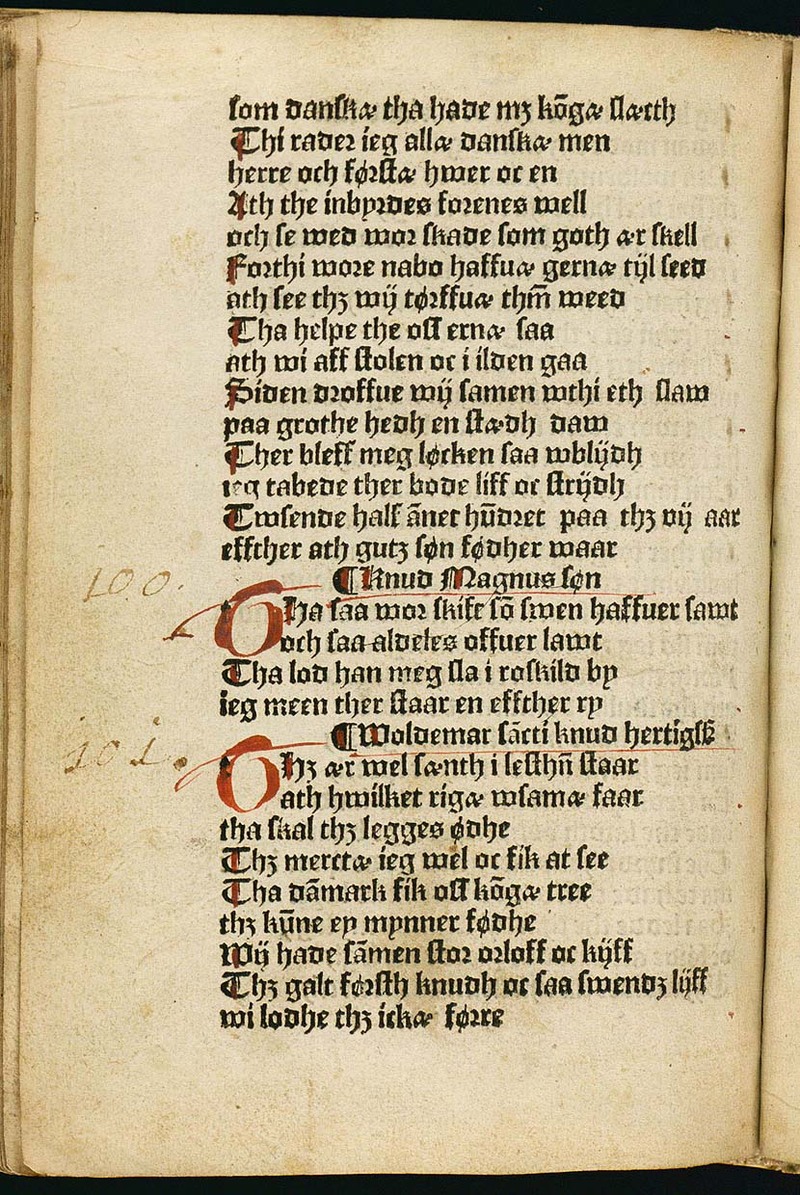 som danskæ tha hade mꝫ kōgæ slæcth
Thi rader ieg allæ danskæ men
herre och førstæ hwer oc en
Ath the inbyrdes forenes well
och se wed wor skade som goth ær skell
Forthi wore nabo haffuæ gernæ tijl seed
ath see thꝫ wij tørffuæ thm̄ weed
Tha helpe the oss ernæ saa
ath wi aff stolen oc i ilden gaa
Siden droffue wij samen wthi eth slaw
paa grothe hedh en stædh daw
Ther bleff meg løcken saa wblijdh
ieg tabede ther bode liff oc strijdh
Twsende half ānet hūdret paa thꝫ vij aar
effther ath gutꝫ søn fødher waar
100.
¶ Knud Magnus søn
THa saa wor skift sō swen haffuer sawt
och saa aldeles offuer lawt
Tha lod han meg sla i roskild by
ieg meen ther staar en effther ry
101.
¶ Woldemar sācti knud hertigss
THꝫ ær wel sænth i lesthn̄ staar
ath hwilket rigæ wsamæ faar
tha skal thꝫ legges ødhe
Thꝫ merctæ ieg wel oc fik at see
Tha dāmark fik oss kōgæ tree
thꝫ kūne ey mynner fødhe
Wij hade sāmen stor orloff oc kijff
Thꝫ galt førsth knudh oc saa swendꝫ lijff
wi lodhe thꝫ ickæ førre